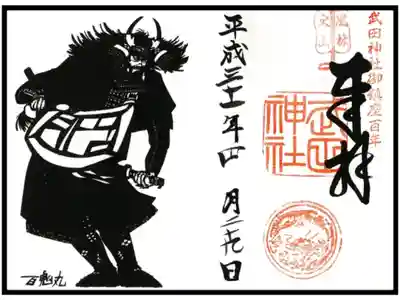 武田神社御鎮座百年
奉拝
風林
火山
武田
神社
平成三十一年四月日
百鬼丸